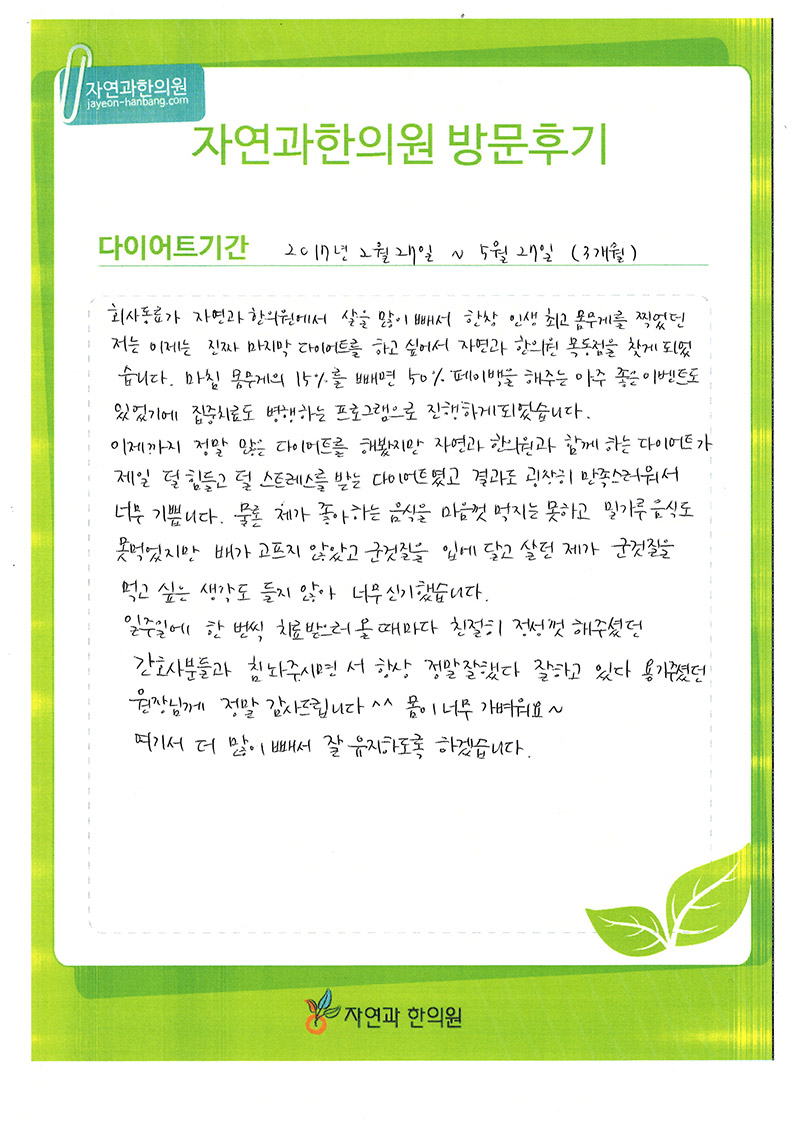 자연과한의원
jayeon-hanbang.com
자연과한의원 방문후기
다이어트기간 2017년 2월 27일 ~ 5월 27일 (3개월)
회사동료가 자연과한의원에서 살을 많이 빼서 한창 인생 최고 몸무게를 찍었던
저는 이제는 진짜 마지막 다이어트를 하고 싶어서 자연과 한의원 목동점을 찾게 되었
습니다. 마침 몸무게의 15%를 빼면 50% 페이백을 해주는 아주 좋은이벤트도
있었기에 집중치료도 병행하는 프로그램으로 진행하게되었습니다.
이제까지 정말 많은 다이어트를 해봤지만 자연과 한의원과 함께 하는 다이어트가
제일 덜 힘들고 덜 스트레스를 받는 다이어트였고 결과도 굉장히 만족스러워서
너무 기쁩니다. 물론 제가 좋아하는 음식을 마음껏 먹지는 못하고 밀가루음식도
못먹었지만 배가 고프지 않았고 군것질을 입에 달고 살던 제가 군것질을
먹고 싶은 생각도 들지 않아 너무신기했습니다.
일주일에 한 번씩 치료받으러 올 때마다 친절히 정성껏 해주셨던
간호사분들과 침 놔주시면서 항상 정말잘했다 잘하고 있다 용기주셨던
원장님께 정말 감사드립니다 ^^ 몸이 너무 가벼워요~
여기서 더 많이 빼서 잘 유지하도록 하겠습니다.
자연과 한의원